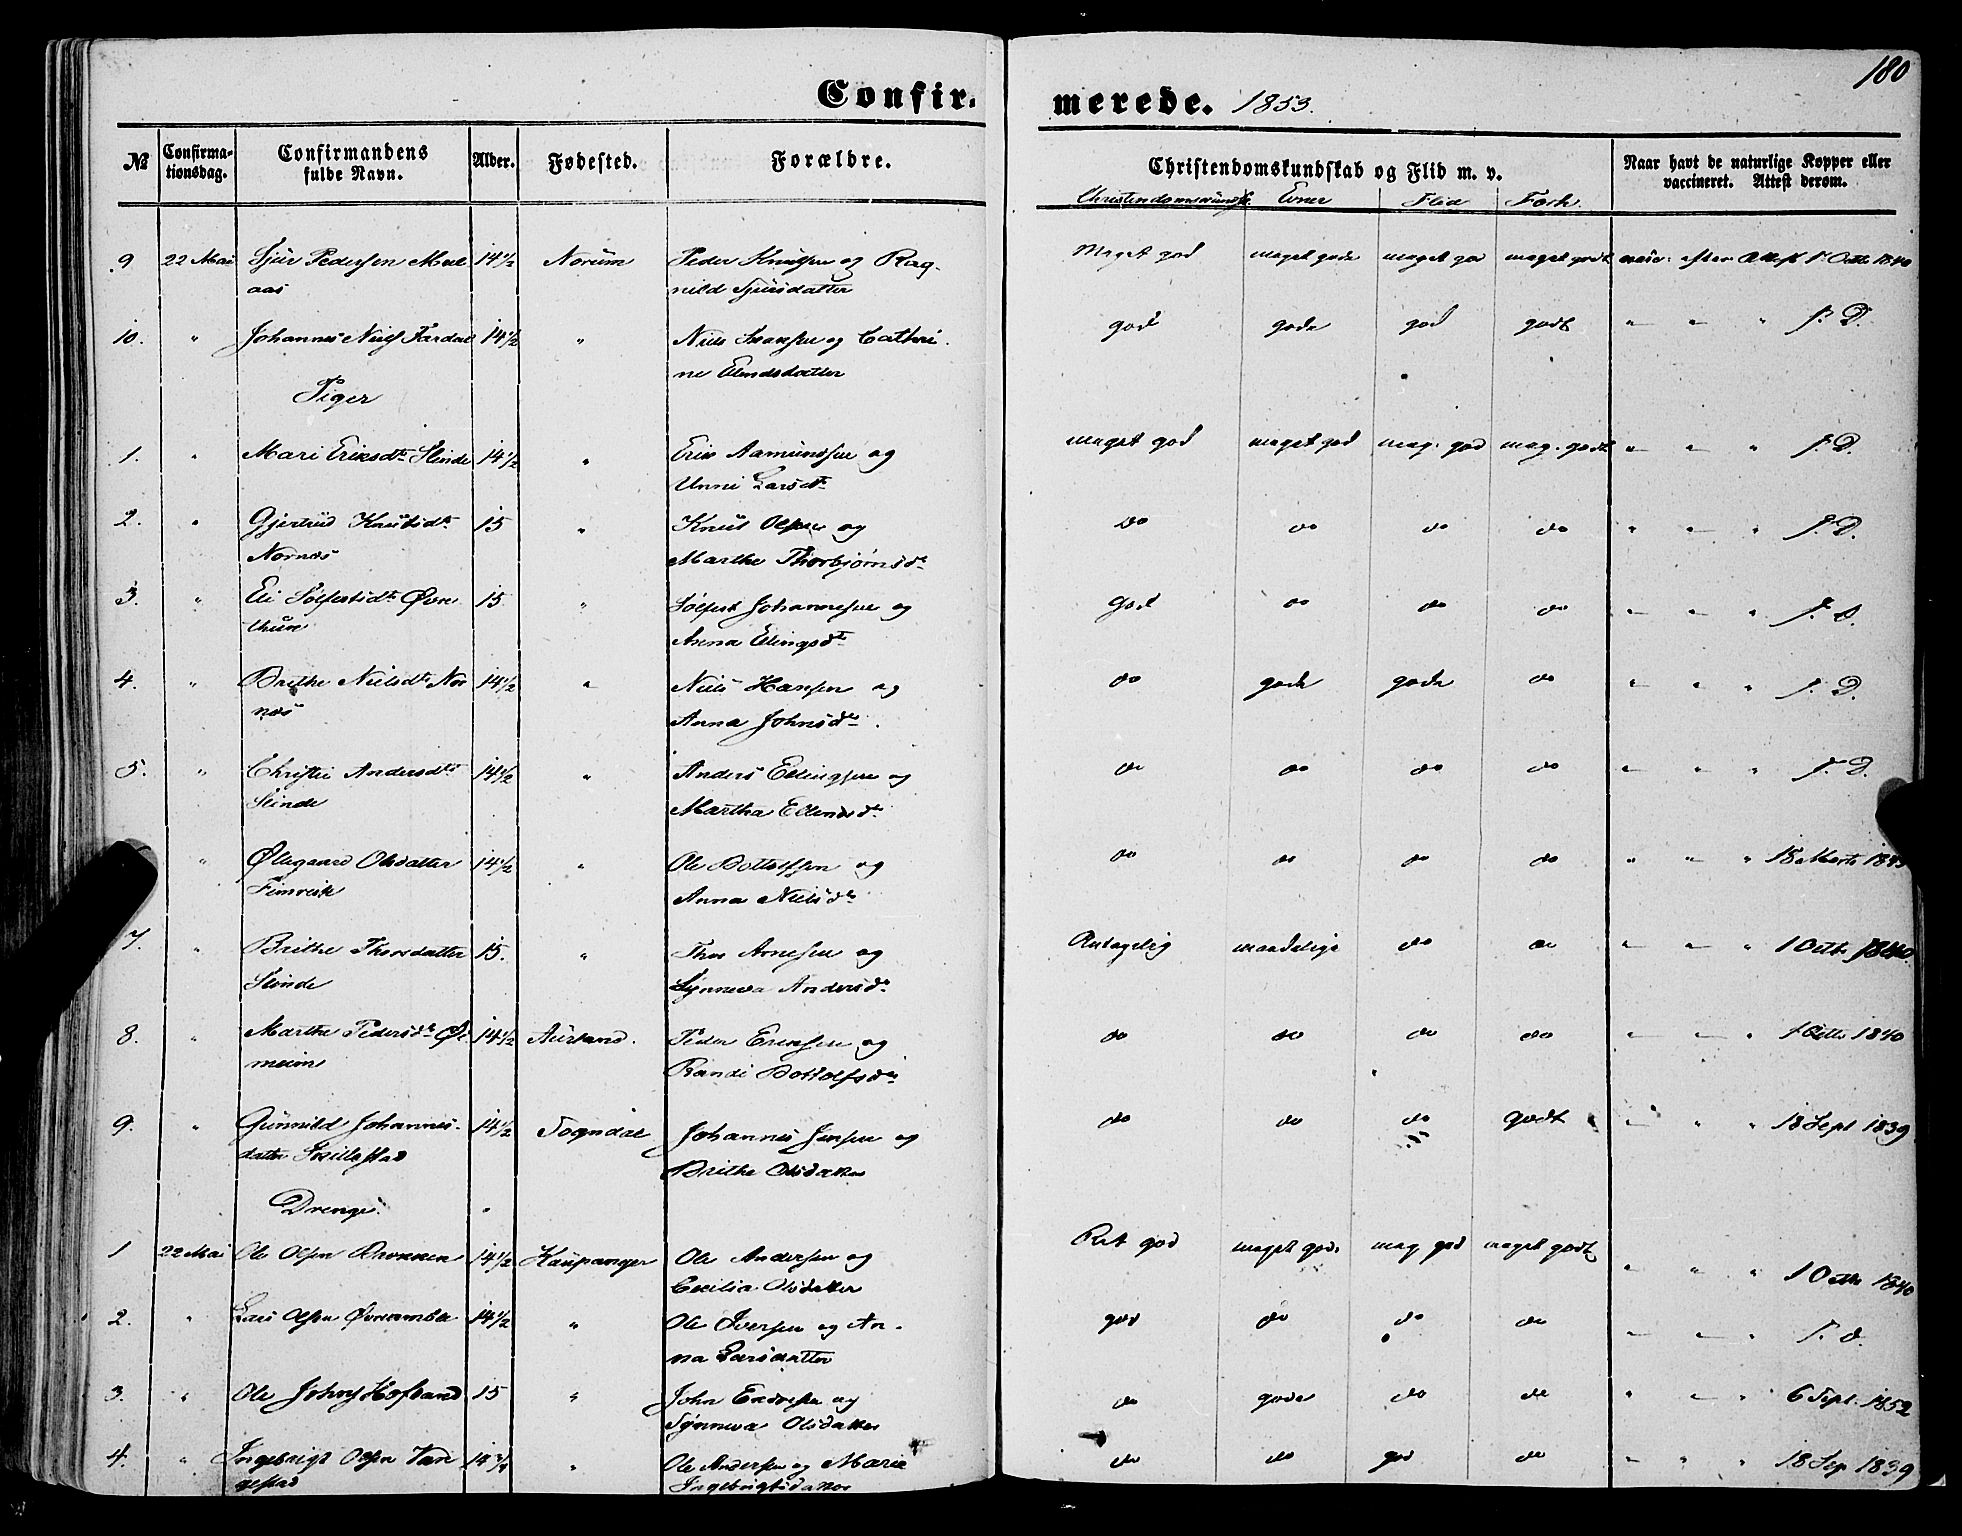 180
Confir- merede. 1853.
№ Confirma-tionsdag. Confirmandens fulde Navn. Alder. Fødested. Forældre. Christendomskundskab og Flid m. v. Naar havt de naturlige Kopper eller vaccineret. Attest derom.
Evner Flid Forh.
9 22 Mai Sjur Pedersen 14½ Norum Peder Knudsen og Rag- Meget god meget gode meget god meget godt vacc. efter Attest 1 Octb 1840
aas nild Sjursdatter
10. " Johannes Niels Fardal 14½ " Niels og Cathri- god gode god godt " " " s. D.
ne Elendsdatter
Piger
1. " Mari Eriksdtr Slinde 14½ " Erik Aamundsen og meget god meget god meg. god meg. godt " " " s. D.
Unni Larsdr
2. " Gjertrud Knutsdtr 15 " Knut Olsen og do do do do " " " s. D.
Nornæs Marthe Thorbjørnsdr
3. " Eli Solfestsdtr Øvre 15 " Solfest Johannesen og God do do do " " " s. D.
thun Anna Ellingsdr
4. " Brithe Nielsdtr Nor 14½ " Niels Hansen og do gode gode do " " " s. D.
næs Anna Johnsdr
5. " Christie Andersdtr 14½ " Anders Ellingsen og do do do do " " " s. D.
Slinde Martha Ellendsdr
" Øllegaard Olsdatter 14½ " Ole Bottolfsen og do do do do " " " 18 Marts
Fimreite Anna Nielsdr
7. " Brithe Thorsdatter 15. " Thor Arnesen og Antagelig maadelige do do " " " 1 Octb 1840.
Slinde Synneva Andersdr
8. " Marthe Pedersdr Øl- 14½ Aurland. Peder Eriksen og do do do do " " " 1 Octb 1840
meim Randi Bottolfsdr
9. " Gunnild Johannes- 14½ Sogndal Johannes Jensen og do do do godt " " " 18 Sept 1839
datter Brithe Olsdatter
Drenge "
1 22 Mai Ole Olsen 14½ Kaupanger Ole Andersen og Ret god meget gode meg god meget godt " " " 1 Octb 1840
Cecilia Olsdatter
2. " Lars Olsen 14½ " Ole Iversen og An- god do do do " " " s. d.
na Larsdatter
3. " Ole Johns Hofland 15 " John Endresen og do gode do do " " " 6 Sept. 1852
Synneva Olsdatter
4. " Ingebrigt Olsen Van 14¾ " Ole Andersen og Marie do do god do " " " 18 Sep 1839
gestad Ingebrigtsdatter